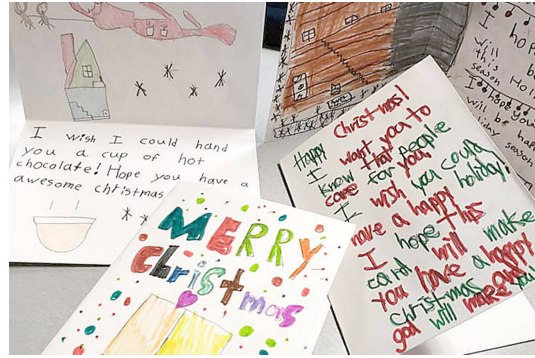 I wish I could hand
you a cup of hot
chocolate! Hope you have a
awesome christmas
MERRY
Christmas
Happy Christmas!
I want you to
know that people
care for you.
I wish you could
have a happy holiday!
I hope this
card will make
you have a happy
christmas and
god will make you
I hope
will be
this
season Holi
I hope you
will be happ
liday season